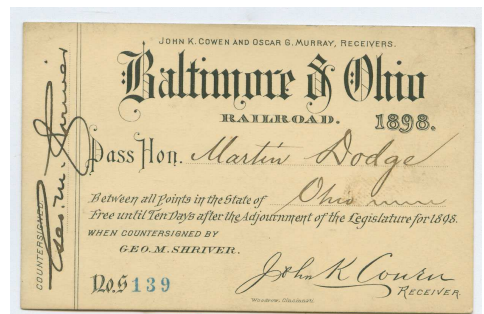 JOHN K. COWEN AND OSCAR G. MURRAY, RECEIVERS.
Baltimore & Ohio
RAILROAD. 1898.
Pass Hon. Martin Dodge
Between all Points in the State of Ohio
Free until Ten Days after the Adjournment of the Legislature for 1898.
WHEN COUNTERSIGNED BY
GEO. M. SHRIVER.
No. S 139
John K Cowen
RECEIVER.
COUNTERSIGNED
Geo. M. Shriver